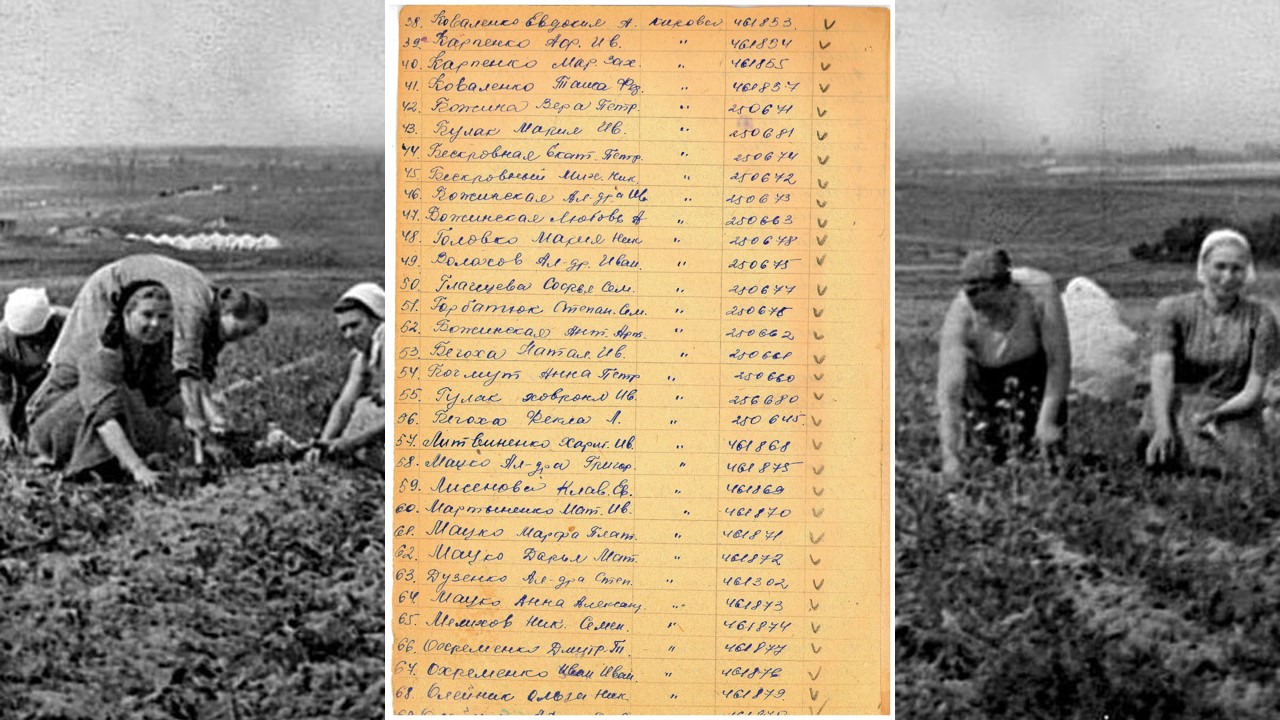 38. Коваленко Евдокия А. кировск 461853 v
39. Карпенко Афр. Ив. " 461854 v
40. Карпенко Мар. Зах. " 461855 v
41. Коваленко Таиса Фед. " 461857 v
42. Божина Вера Петр. " 250671 v
43. Булак Мария Ив. " 250681 v
44. Бескровная Екат. Петр. " 250674 v
45. Бескровный Мих. Ник. " 250672 v
46. Божинская Ал-др'а Ив. " 250673 v
47. Божинская Любовь А " 250663 v
48. Головко Мария Ник " 250678 v
49. Волохов Ал-др. Иван. " 250675 v
50. Глащева Софья Сем. " 250677 v
51. Горбатюк Степан. Сем. " 250676 v
52. Божинская Ант. Арт. " 250662 v
53. Бегоха Натал. Ив. " 250661 v
54. Богмут Анна Петр " 250660 v
55. Гулак Ховронья Ив. " 250680 v
56. Бегоха Фекла Л. " 250645. v
57. Литвиненко Харит. Ив. " 461868 v
58. Мацко Ал-дра Григор. " 461875 v
59. Клав. " 461869 v
60. Мартыненко Мат. Ив. " 461870 v
61. Мацко Марфа Плат. " 461871 v
62. Мацко Дарья Мат. " 461872 v
63. Дузенко Ал-дра Степ. " 461302 v
64. Мацко Анна Александ. " 461873 v
65. Мелихов Ник. Семен. " 461874 v
66. Охременко Дмитр. Т. " 461877 v
67. Охременко Иван Иван. " 461876 v
68. Олейник Ольга Ник. " 461879 v